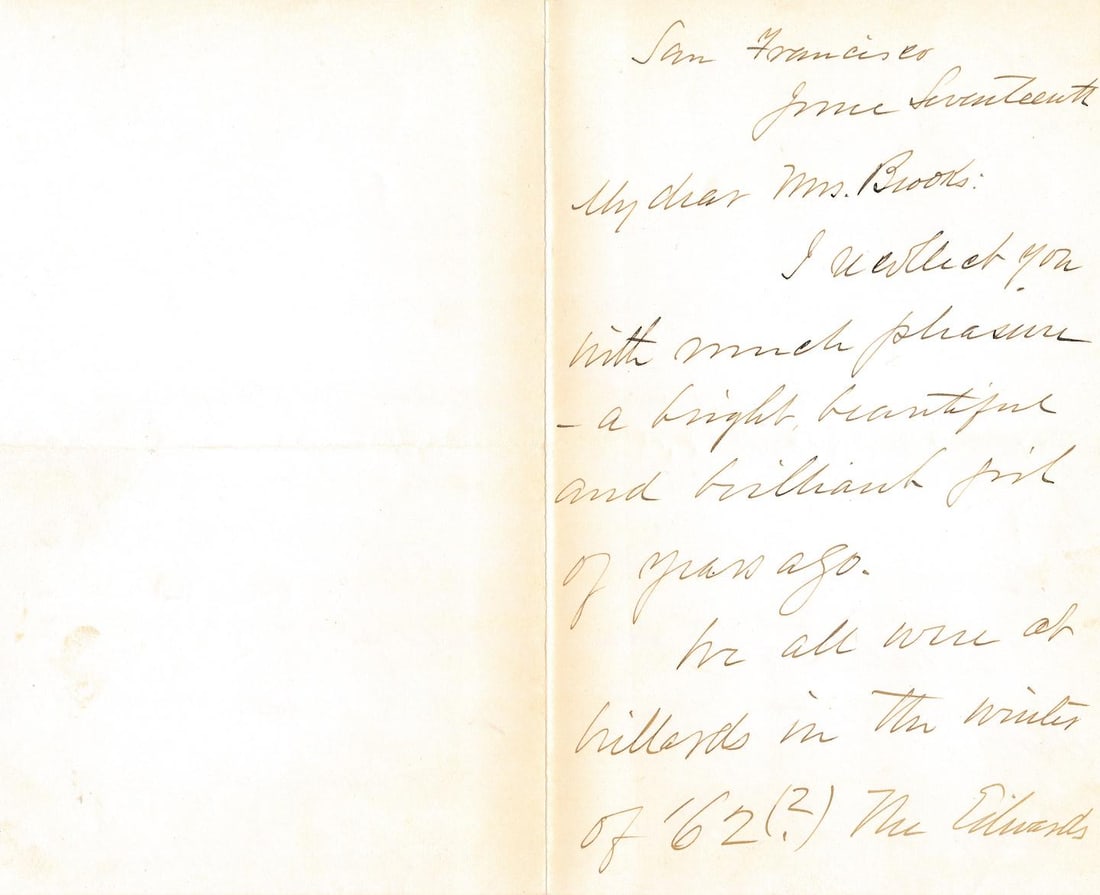 San Francisco
June Seventeenth
My dear Mrs. Brooks:
I recollect you
with much pleasure
- a bright, beautiful
and brilliant girl
of years ago.
We all were at
in the winter
of '62(?) The Edwards